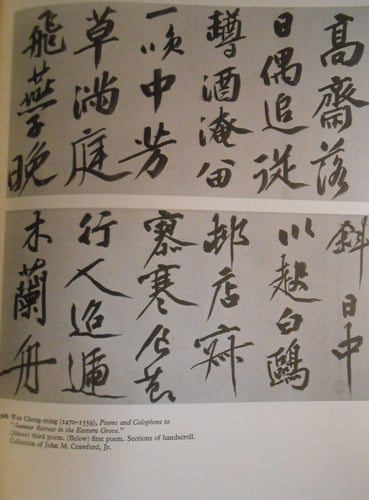 高齋落
日偶追從
罇酒淹留
一咲中芳
草滿庭
飛燕子晚
斜日中
川起白鷗
邨店寂
寥寒食
行人迢遞
木蘭舟
Wen Cheng-ming (1470-1559), Poems and Colophons to
"Summer Retreat in the Eastern Grove."
(Above) third poem. (Below) first poem. Sections of handscroll.
Collection of John M. Crawford, Jr.